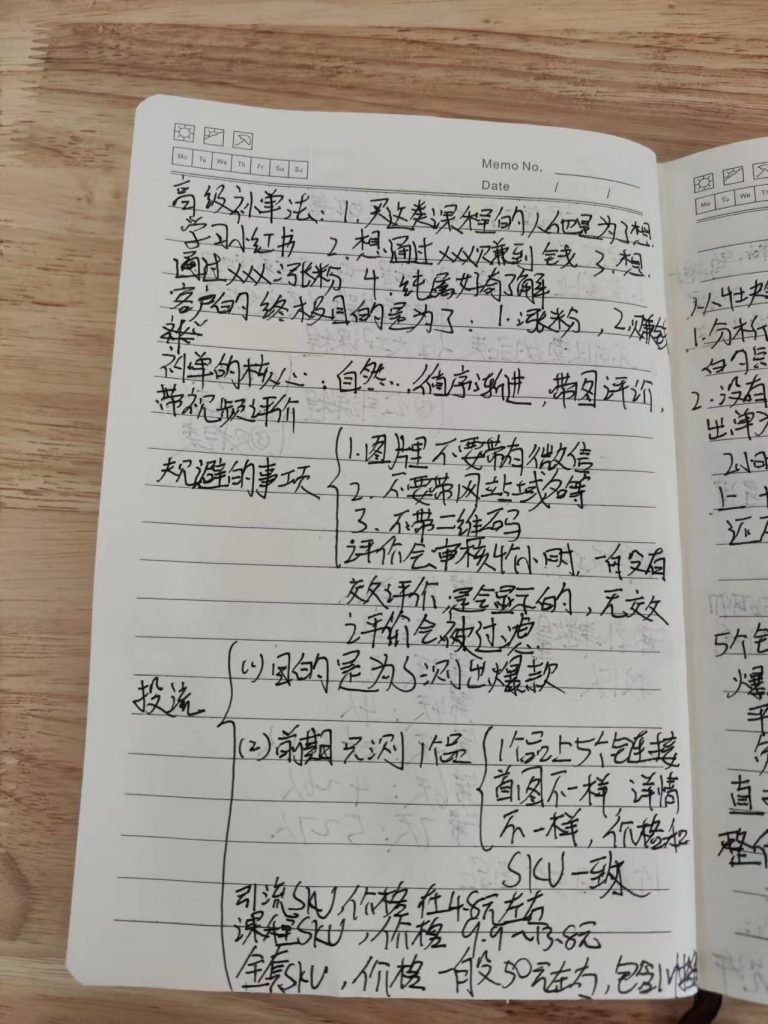 Mo Tu We Th Fr Sa Su
Memo No.
Date / /
高级补单法：1. 买这类课程的人他是为了想
学习小红书 2. 想通过xxx赚到钱 3. 想
通过xxx涨粉 4. 纯属好奇了解
客户的终极目的是为了：1. 涨粉，2. 赚钱
补单的核心：自然..，循序渐进，带图评价，
带视频评价
规避的事项
1. 图片里不要带有微信
2. 不要带网站域名等
3. 不带二维码
评价会审核4个小时，一般有
效评价，是会显示的，无效
评价会被过滤
投流
(1) 目的是为了测出爆款
(2) 前期只测1个品
1个品上5个链接
首图不一样 详情
不一样，价格和
SKU一致
引流SKU，价格在4.8元左右
课程SKU，价格 9.9～13.8元
全套SKU，价格一般50元左右，包含
Mo Tu We Th
1. 分析
2. 没有
出单
2小时
5个
爆
平
直
整个